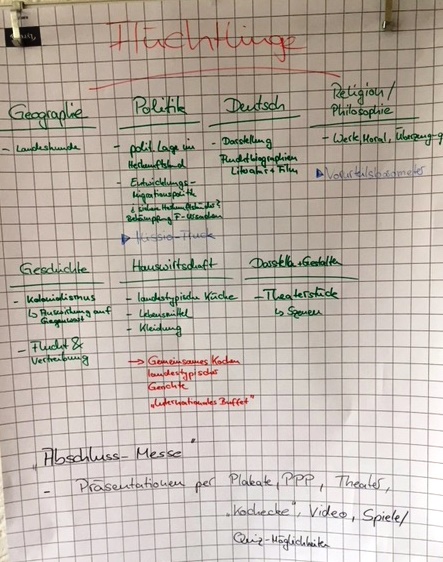 Flüchtlinge
Geographie
- Landeskunde
Politik
- polit. Lage im
Herkunftsland
- Entwicklungs-
Migrationspolitik
Bekämpfung F-Ursachen
Deutsch
- Darstellung
Fluchtbiographien
Literatur + Film
Religion/
Philosophie
- Werte, Moral,
Vorurteilsbarometer
Geschichte
- Kolonialismus
↳ Auswirkung auf
Gegenwart
- Flucht &
Vertreibung
Hauswirtschaft
- landestypische Küche
- Lebensmittel
- Kleidung
→ Gemeinsames Kochen
landestypischer
Gerichte
„Internationales Buffet"
Darstellen + Gestalten
- Theaterstück
↳ Szenen
„Abschluss-Messe"
- Präsentationen per Plakate, PPP, Theater,
„Kochecke", Video, Spiele/
Quiz-Möglichkeiten